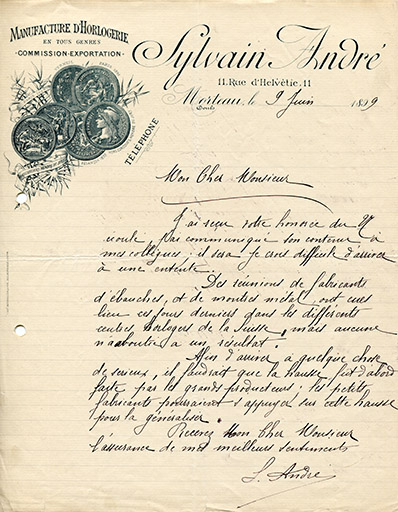 MANUFACTURE D'HORLOGERIE
EN TOUS GENRES
COMMISSION-EXPORTATION
TÉLÉPHONE
Sylvain André
11. Rue d'Helvétie. 11
Morteau, le 9 Juin 1899
Doubs
Mon Cher Monsieur
J'ai reçu votre honorée du
écoulé, j'ai communiqué son contenu à
mes collègues; il sera je crois difficile d'arriver
à une entente.
Des réunions de fabricants
d'ébauches, et de montres métal, ont eues
lieu ces jours derniers dans les différents
centres horlogers de la Suisse, mais aucune
n'a aboutie à un résultat.
Afin d'arriver à quelque chose
de sérieux, il faudrait que la hausse fut d'abord
faite par les grands producteurs; les petits
fabricants pourraient s'appuyer sur cette hausse
pour la généraliser.
Recevez Mon Cher Monsieur
l'assurance de mes meilleurs sentiments
S. André